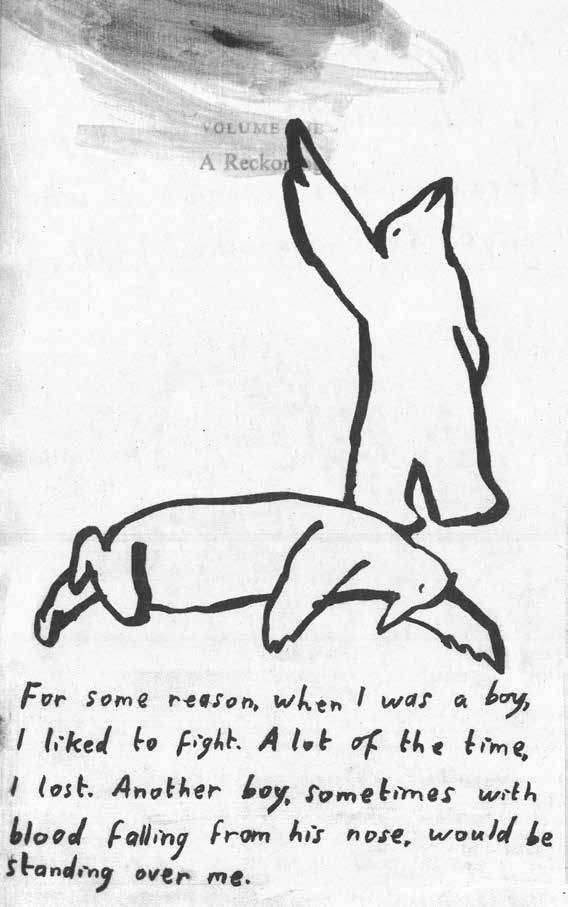 VOLUME ONE
A Reckoning
For some reason, when I was a boy,
I liked to fight. A lot of the time,
I lost. Another boy, sometimes with
blood falling from his nose, would be
standing over me.